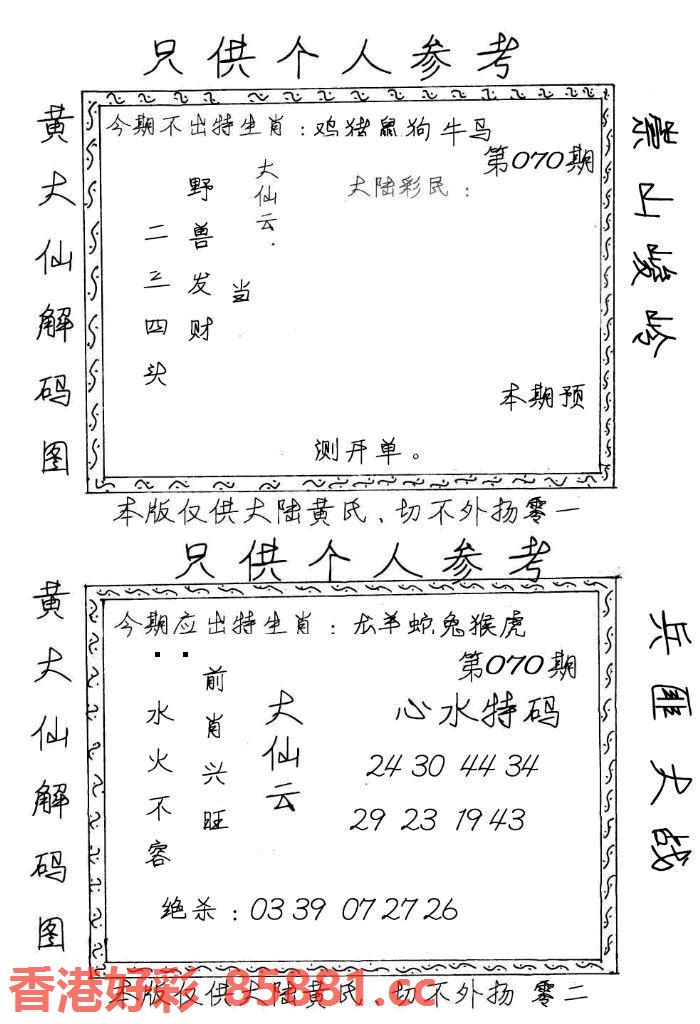 只供个人参考
黄大仙解码图
今期不出特生肖：鸡猪鼠狗牛马
第070期
大仙云：
大陆彩民：
野兽发财
当
二三四头
本期预
测开单。
崇山峻岭
本版仅供大陆黄氏、切不外扬零一
只供个人参考
黄大仙解码图
今期应出特生肖：龙羊蛇兔猴虎
第070期
前肖兴旺
水火不容
大仙云
心水特码
24 30 44 34
29 23 19 43
绝杀：03 39 07 27 26
兵匪大战
香港好彩 85881.cc
本版仅供大陆黄氏、切不外扬 零二